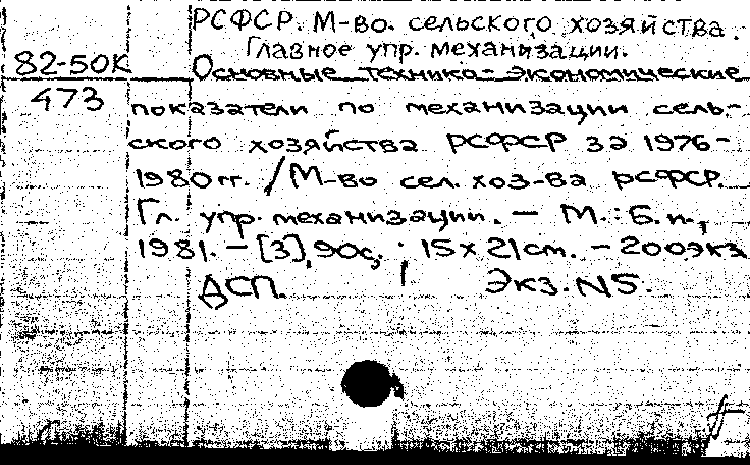 РСФСР. М-во. сельского хозяйства.
Главное упр. механизации.
82-50К
Основные технико-экономические
473
показатели по механизации сель-
ского хозяйства РСФСР за 1976-
1980 гг. / М-во сел. хоз-ва РСФСР.
Гл. упр. механизации. - М.: Б. и.,
1981. - [3], 90с. ; 15 х 21 см. - 200экз
ДСП. Экз. N5.